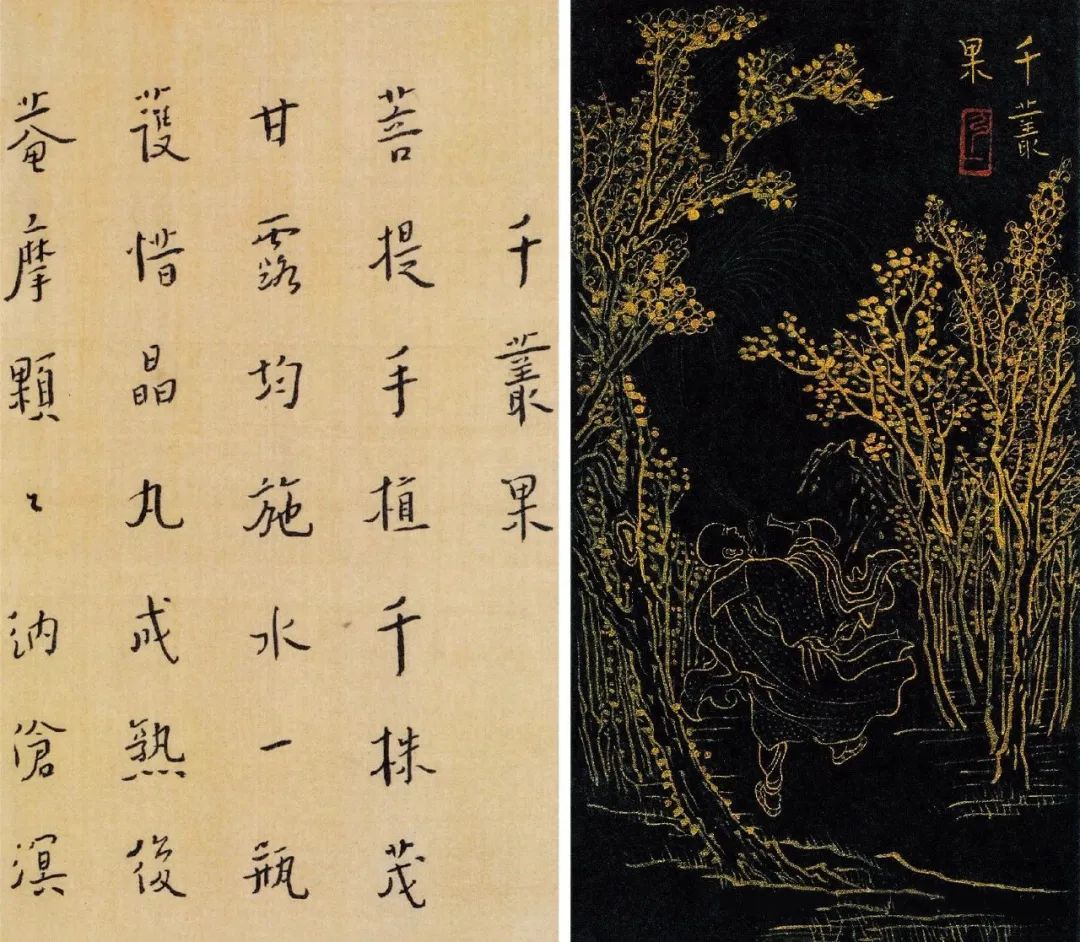 千叢果
菩提手植千株茂
甘露均施水一瓶
護惜晶丸成熟後
菴摩顆〻納滄溟
千叢
果
弘一